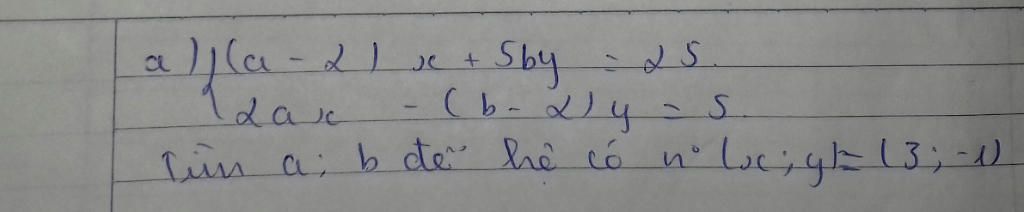 a) { (a - 2) x + 5by = 25.
2ax - (b - 2) y = 5.
Tìm a; b để hệ có n° (x; y) = (3; -1)